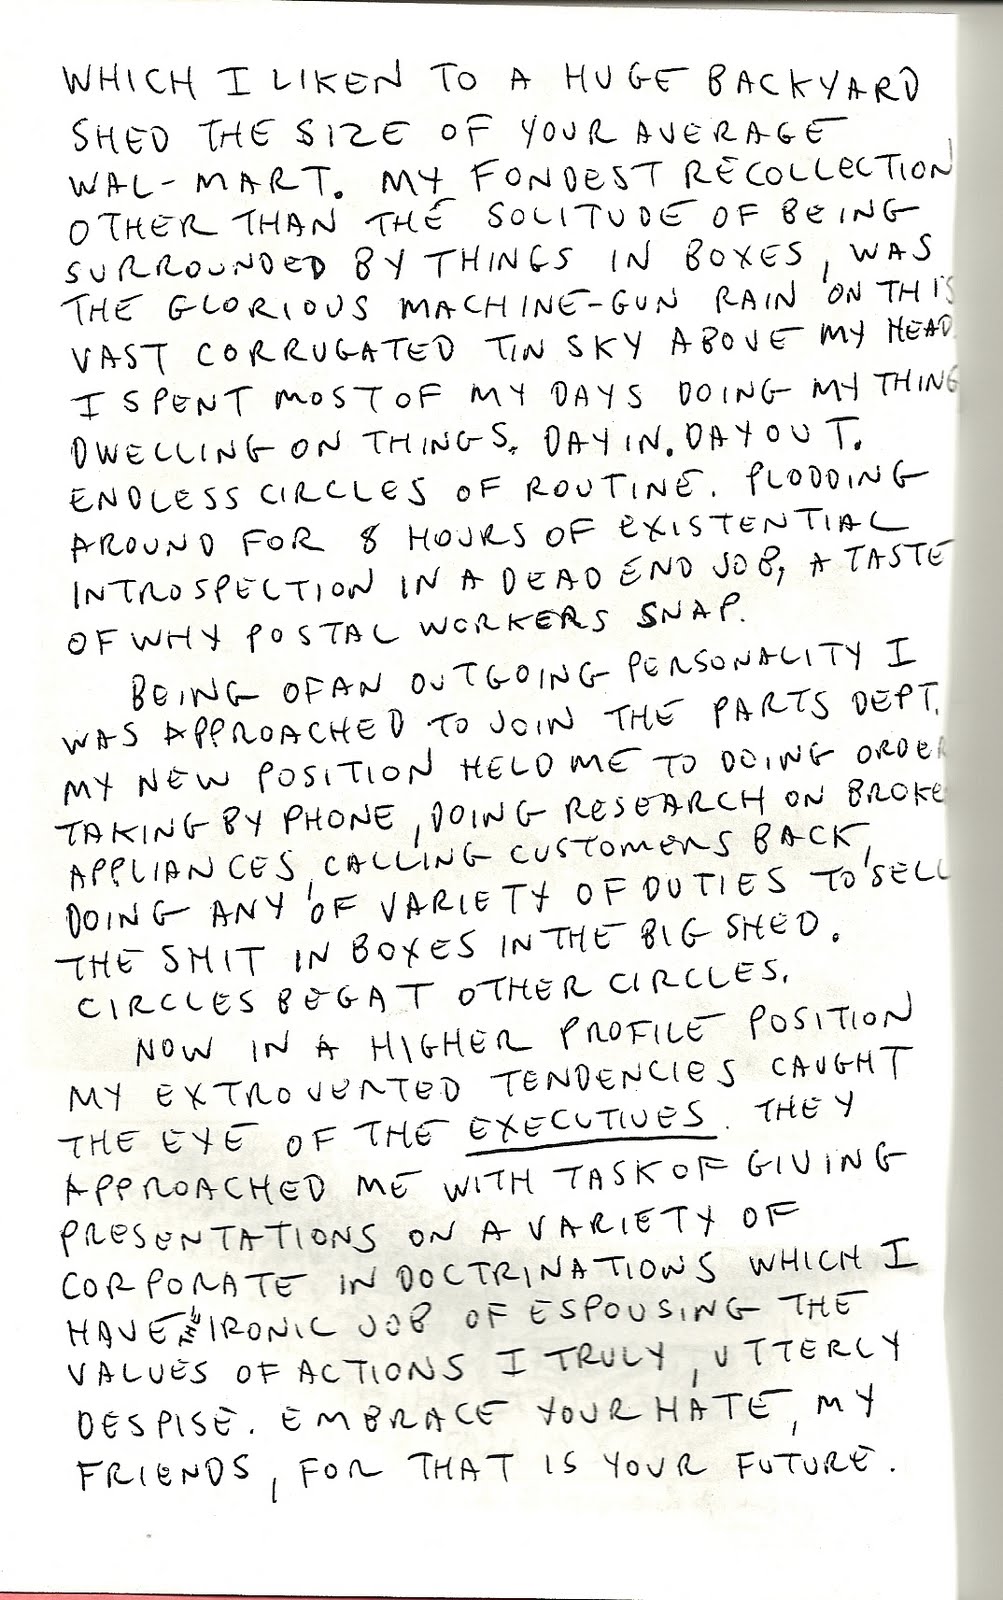 WHICH I LIKEN TO A HUGE BACKYARD
SHED THE SIZE OF YOUR AVERAGE
WAL-MART. MY FONDEST RECOLLECTION
OTHER THAN THE SOLITUDE OF BEING
SURROUNDED BY THINGS IN BOXES, WAS
THE GLORIOUS MACHINE-GUN RAIN ON THIS
VAST CORRUGATED TIN SKY ABOVE MY HEAD.
I SPENT MOST OF MY DAYS DOING MY THING
DWELLING ON THINGS. DAY IN. DAY OUT.
ENDLESS CIRCLES OF ROUTINE. PLODDING
AROUND FOR 8 HOURS OF EXISTENTIAL
INTROSPECTION IN A DEAD END JOB, A TASTE
OF WHY POSTAL WORKERS SNAP.
BEING OF AN OUTGOING PERSONALITY I
WAS APPROACHED TO JOIN THE PARTS DEPT.
MY NEW POSITION HELD ME TO DOING ORDER
TAKING BY PHONE, DOING RESEARCH ON BROKE
APPLIANCES, CALLING CUSTOMERS BACK,
DOING ANY OF VARIETY OF DUTIES TO SELL
THE SHIT IN BOXES IN THE BIG SHED.
CIRCLES BEGAT OTHER CIRCLES.
NOW IN A HIGHER PROFILE POSITION
MY EXTROVERTED TENDENCIES CAUGHT
THE EYE OF THE EXECUTIVES. THEY
APPROACHED ME WITH TASK OF GIVING
PRESENTATIONS ON A VARIETY OF
CORPORATE INDOCTRINATIONS WHICH I
HAVE THE IRONIC JOB OF ESPOUSING THE
VALUES OF ACTIONS I TRULY, UTTERLY
DESPISE. EMBRACE YOUR HATE, MY
FRIENDS, FOR THAT IS YOUR FUTURE.